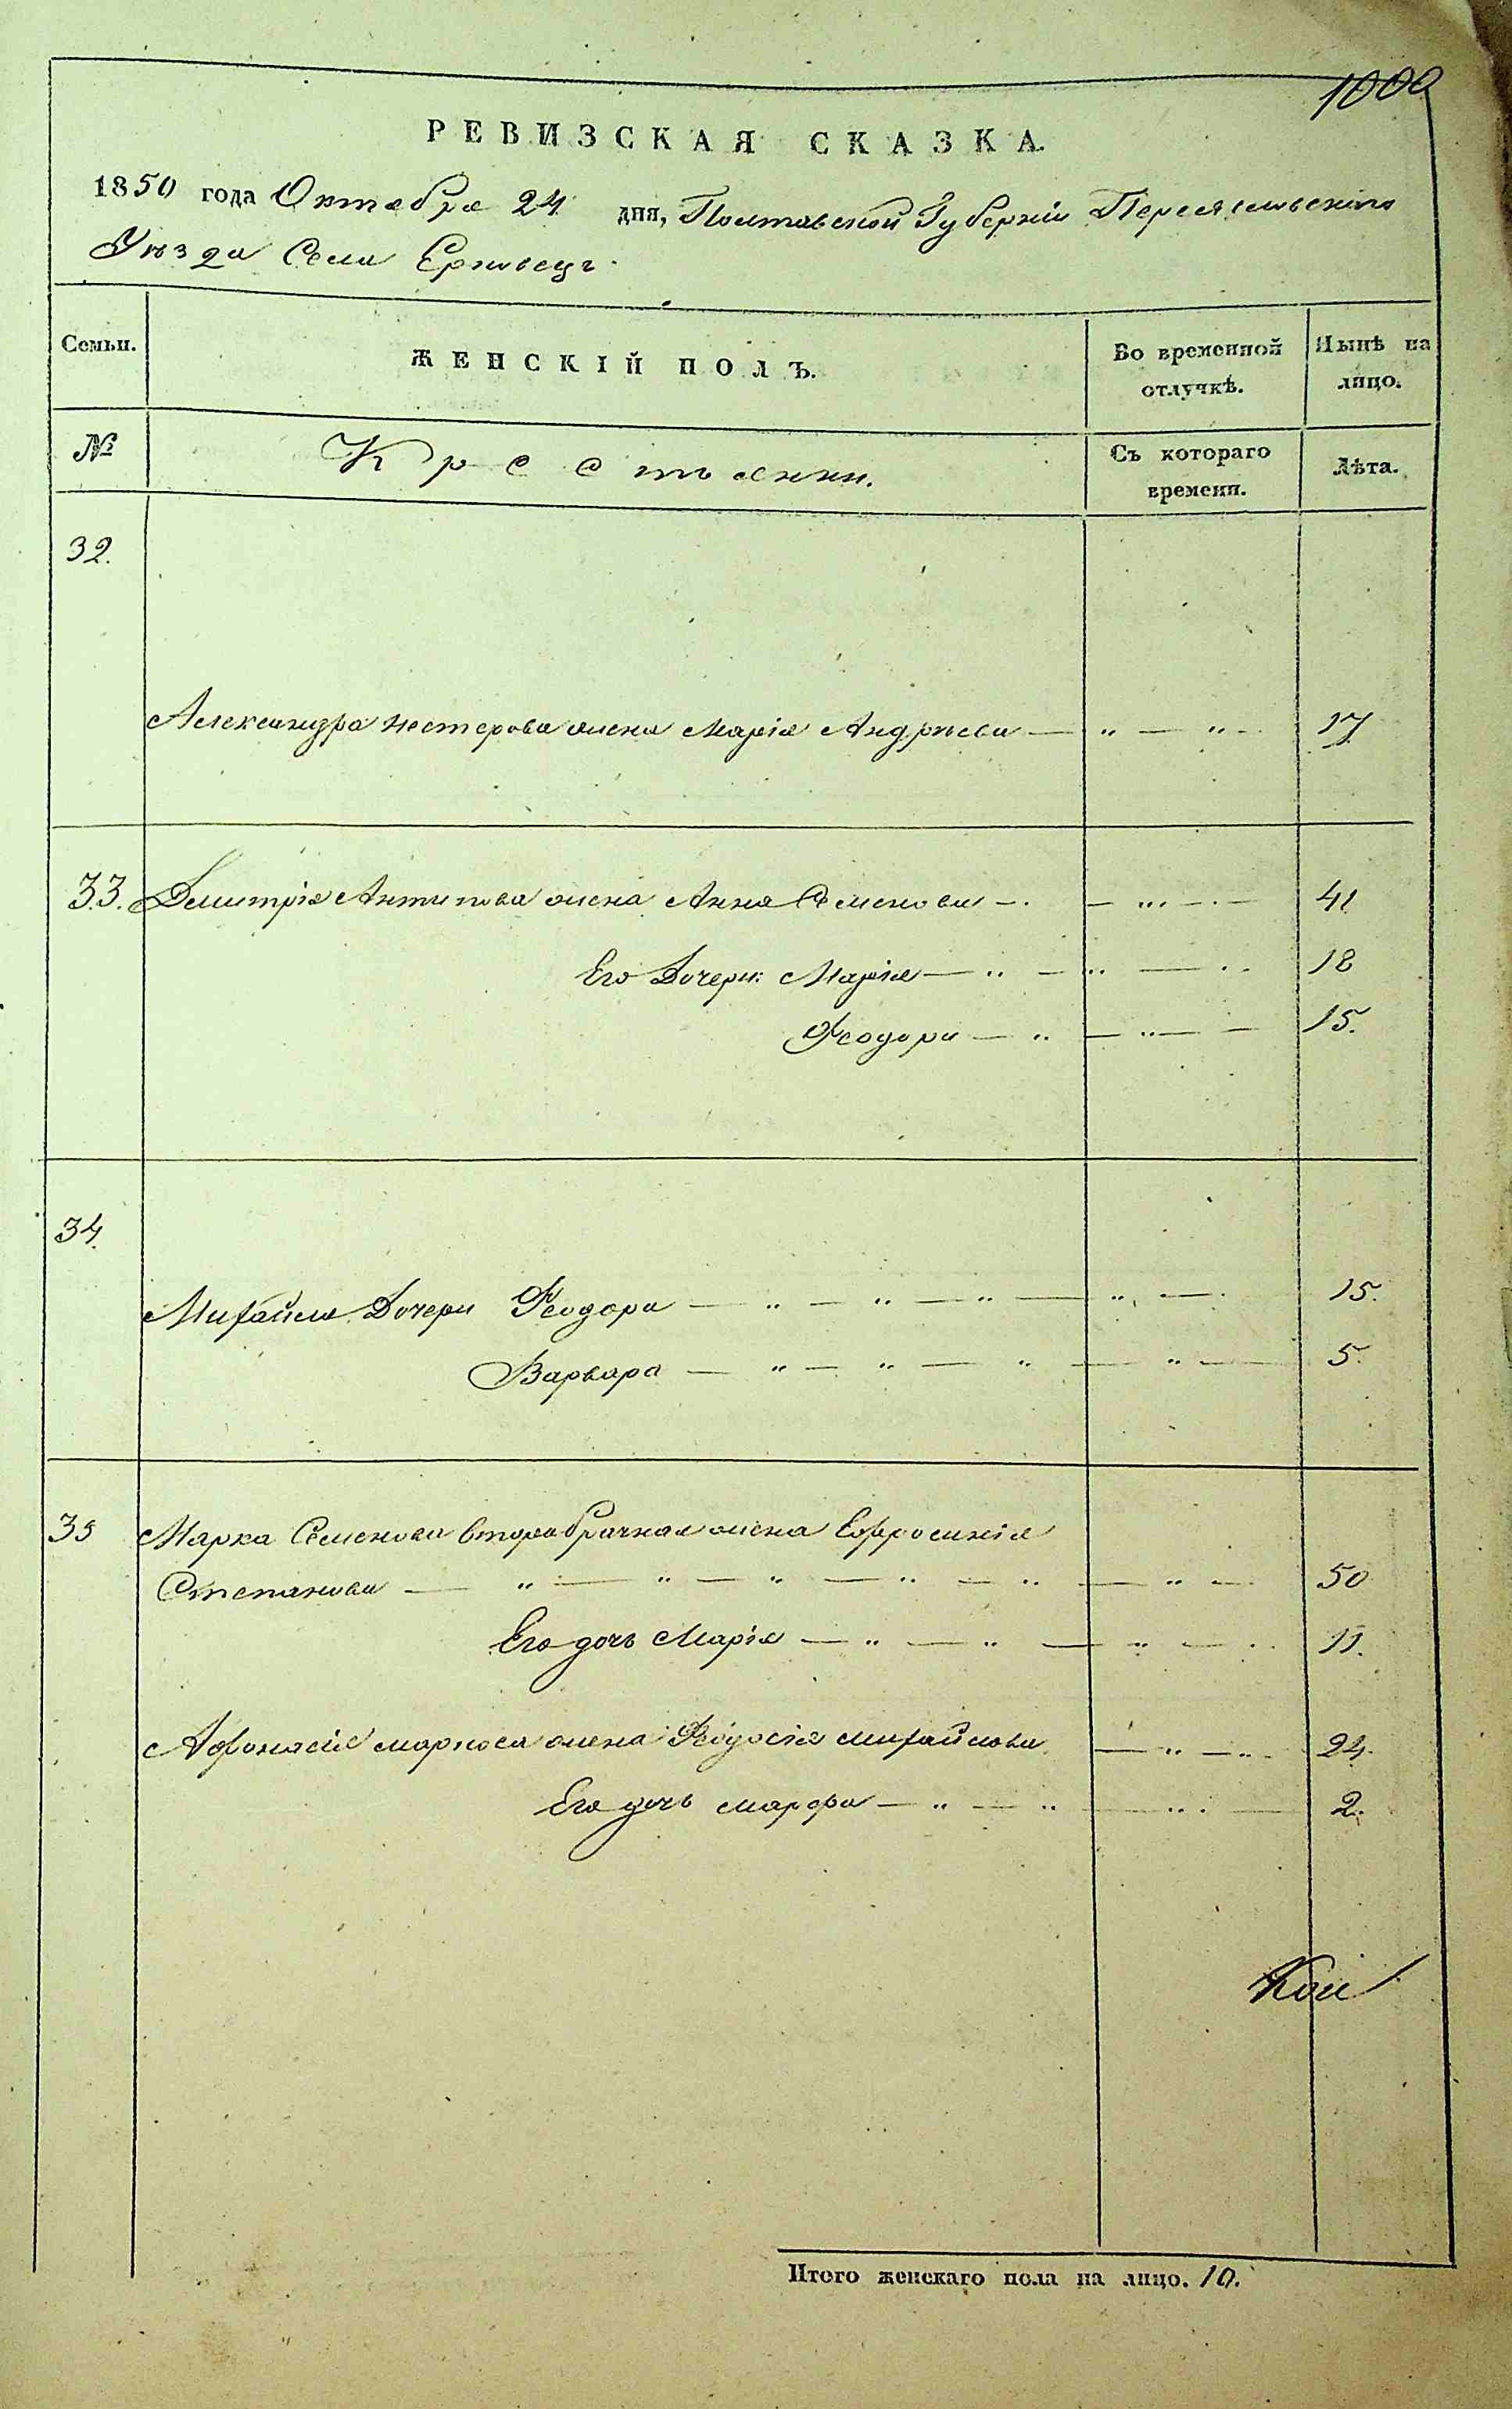 1000
РЕВИЗСКАЯ СКАЗКА.
1850 года Октября 24 дня, Полтавской Губерніи Переяславскаго
Уѣзда Села Ерковецъ.
Семьи. ЖЕНСКІЙ ПОЛЪ. Во временной отлучкѣ. Нынѣ на лицо.
№ Крестьянки. Съ котораго времени. Лѣта.
32.
Александра Нестерова жена Марія Андрѣева — „ — „ — 17
33. Дмитрія Антипова жена Анна Семенова — „ — 41
Его Дочери: Марія — „ — „ — 18
Феодора — „ — „ — 15.
34.
Михайла Дочери Феодора — „ — „ — „ — „ — 15.
Варвара — „ — „ — „ — „ — 5.
35 Марка Семенова второбрачная жена Евфросинія
Степанова — „ — „ — „ — „ — „ — „ — 50
Его дочь Марія — „ — „ — „ — 11.
Афонасія Маркова жена Феодосія Михайлова — „ — „ 24.
Его дочь Марфа — „ — „ — „ — 2.
Итого женскаго пола на лицо. 10.